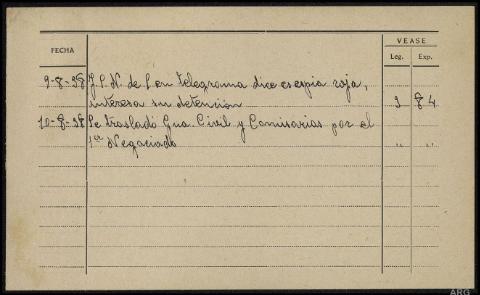 VEASE
FECHA
Leg. Exp.
9-8-38 J.S.N. de S en telegrama dice es espia roja,
interesa su detención 3 84
10-8-38 Se trasladó Gua. Civil y Comisarias por el
1er Negociado " "
ARG